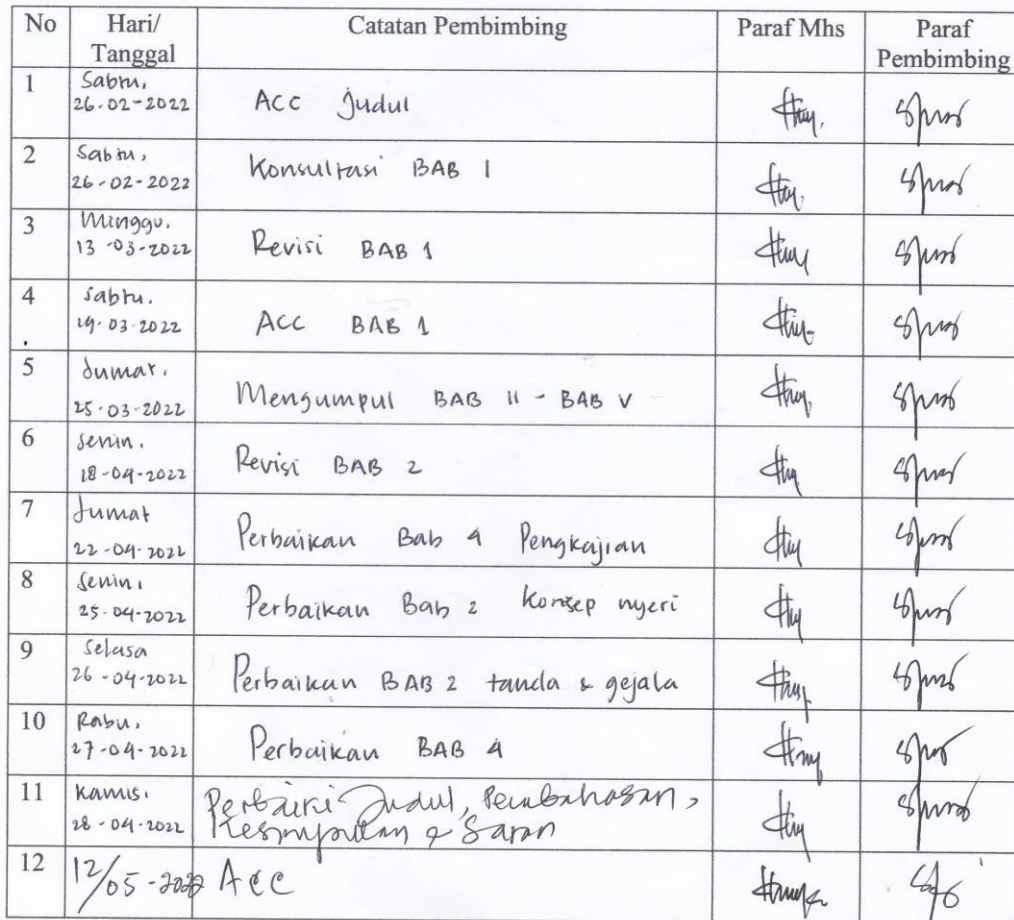 No Hari/ Catatan Pembimbing Paraf Mhs Paraf
Tanggal Pembimbing
1 Sabtu,
26-02-2022 ACC Judul
2 Sabtu,
26-02-2022 Konsultasi BAB 1
3 Minggu,
13-03-2022 Revisi BAB 1
4 Sabtu,
19-03-2022 ACC BAB 1
5 Jumat,
25-03-2022 Mengumpul BAB II - BAB V
6 Senin,
18-04-2022 Revisi BAB 2
7 Jumat
22-04-2022 Perbaikan Bab 4 Pengkajian
8 Senin,
25-04-2022 Perbaikan Bab 2 Konsep nyeri
9 Selasa
26-04-2022 Perbaikan BAB 2 tanda & gejala
10 Rabu,
27-04-2022 Perbaikan BAB 4
11 Kamis, Perbaiki Judul, Pembahasan,
28-04-2022 Kesimpulan & Saran
12 12/05-2022 ACC